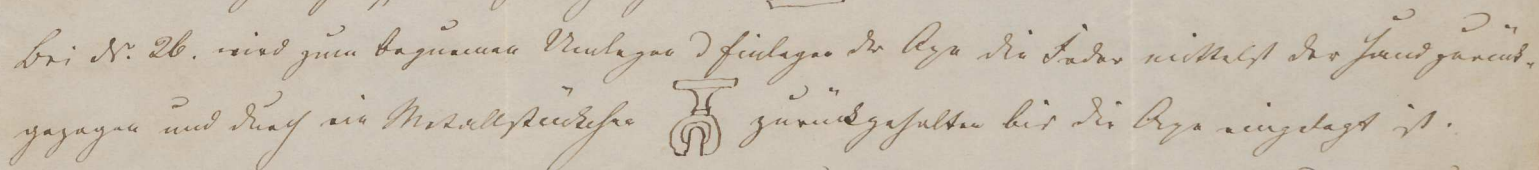 Bei ds. 26. wird zum bequemen Umlegen & Einlegen der Axe die Feder mittelst der Hand zurück-
gezogen und durch ein Metallstückchen zurückgehalten bis die Axe eingelegt ist.